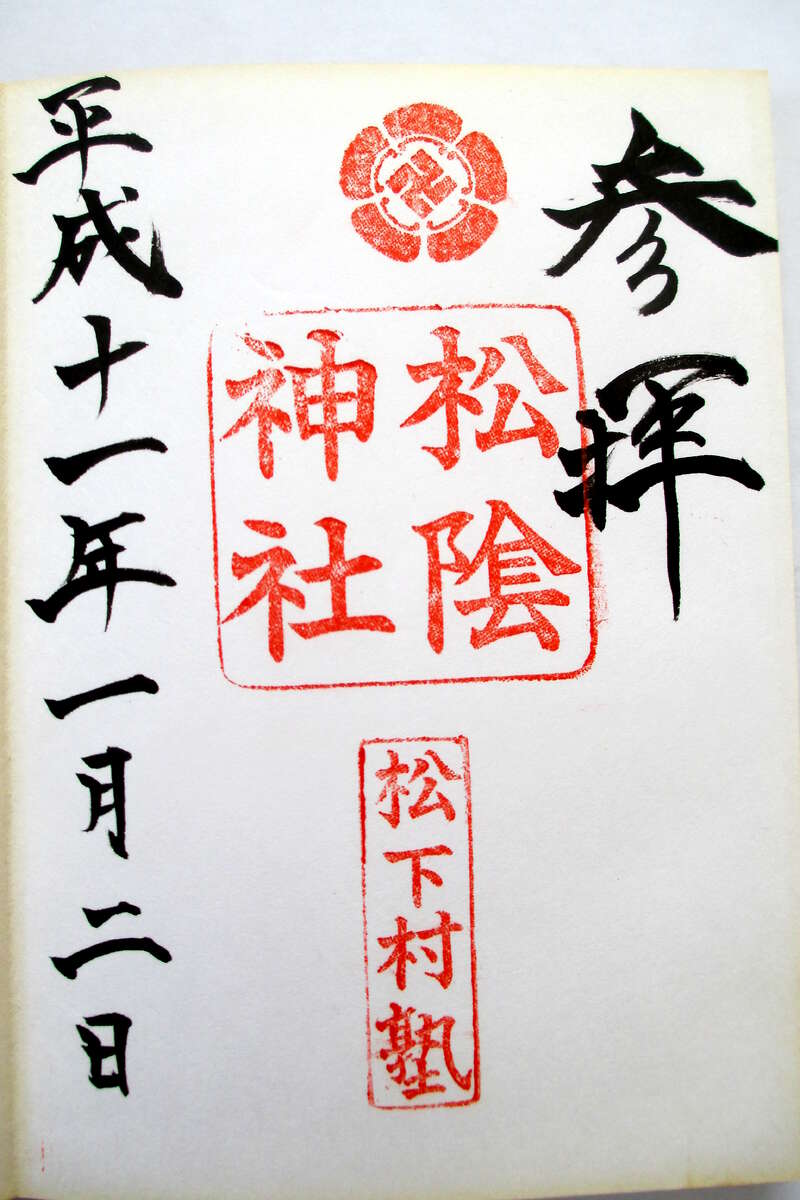 参拝
松陰
神社
松下村塾
平成十一年一月二日